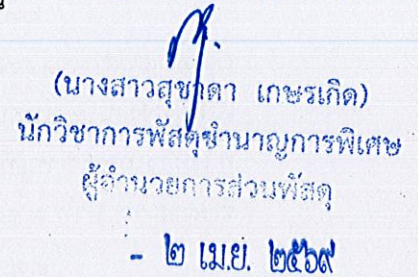 (นางสาวสุชาดา เกษรเกิด)
นักวิชาการพัสดุชำนาญการพิเศษ
ผู้อำนวยการส่วนพัสดุ
- ๒ เม.ย. ๒๕๖๙